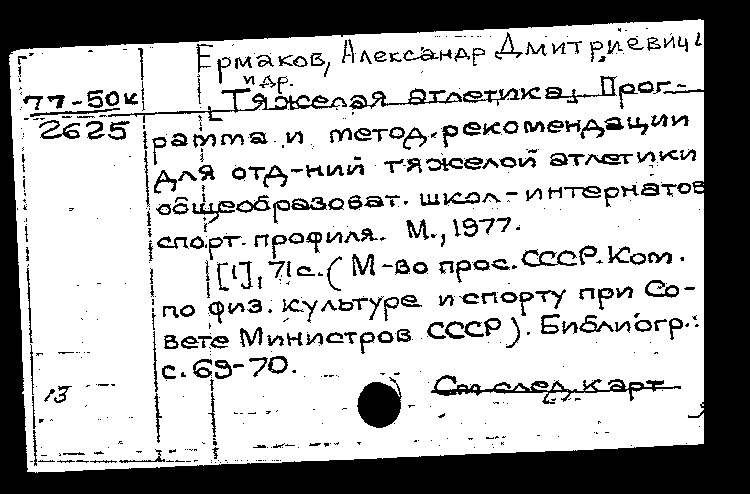 Ермаков, Александр Дмитриевич
и др.
77-50к Тяжелая атлетика. Прог-
2625 рамма и метод. рекомендации
для отд-ний тяжелой атлетики
общеобразоват. школ-интернатов
спорт. профиля. М., 1977.
[1], 71 с. (М-во прос. СССР. Ком.
по физ. культуре и спорту при Со-
вете Министров СССР). Библиогр.:
с. 69-70.
13 См след. карт